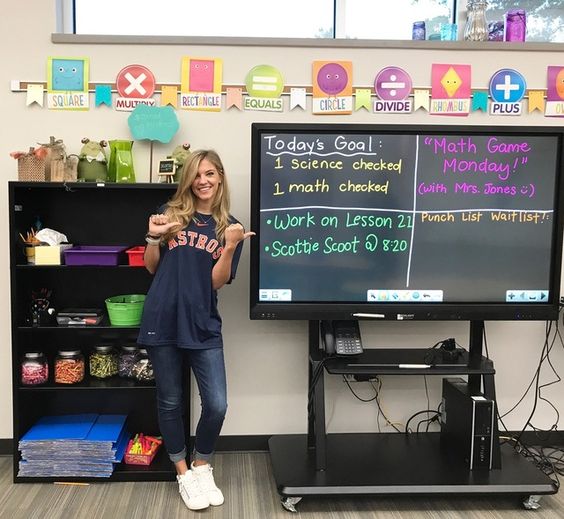 SQUARE
MULTIPLY
RECTANGLE
EQUALS
CIRCLE
DIVIDE
RHOMBUS
PLUS
OVAL
Today's Goal:
1 science checked
1 math checked
"Math Game
Monday!"
(with Mrs. Jones :)
• Work on Lesson 21
• Scottie Scoot @ 8:20
Punch List Waitlist!:
ASTROS